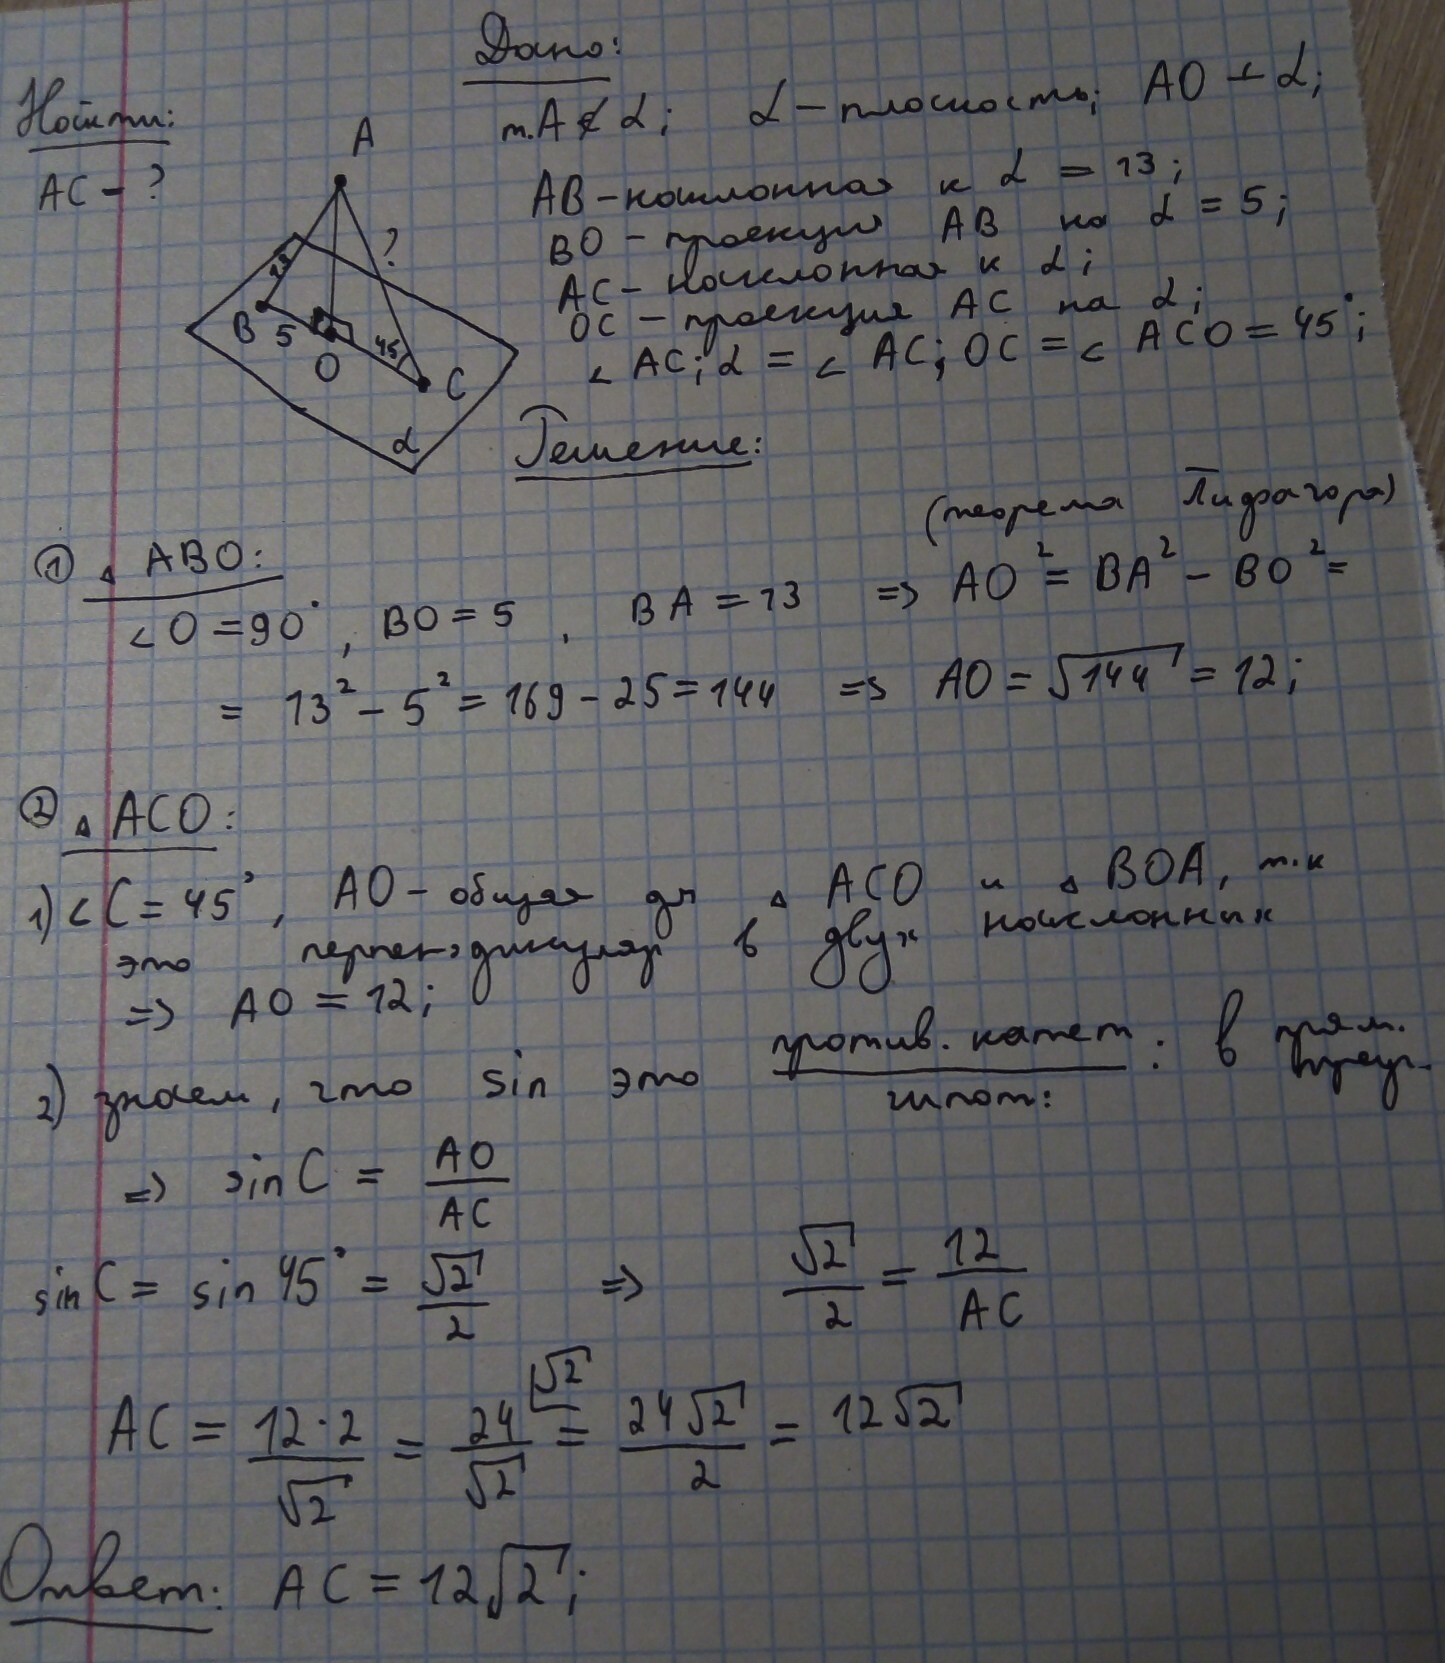 Дано:
Найти:
т.A ∉ α; α – плоскость; AO ⊥ α;
AC – ?
AB – наклонная к α = 13;
BO – проекция AB на α = 5;
AC – наклонная к α;
OC – проекция AC на α;
∠ AC; α = ∠ AC; OC = ∠ ACO = 45°;
A
13
?
B
5
O
45
C
α
Решение:
(теорема Пифагора)
① △ ABO:
∠O = 90°, BO = 5, BA = 13 => AO² = BA² – BO² =
= 13² – 5² = 169 – 25 = 144 => AO = √144 = 12;
② △ ACO:
1) ∠C = 45°, AO – общая для △ ACO и △ BOA, т.к
это перпендикуляр в двух наклонных
=> AO = 12;
2) знаем, что sin это против. катет / гипот: : в прям. треуг.
=> sin C = AO / AC
sin C = sin 45° = √2 / 2 => √2 / 2 = 12 / AC
AC = 12·2 / √2 = 24 / √2 |√2 = 24√2 / 2 = 12√2
Ответ: AC = 12√2;